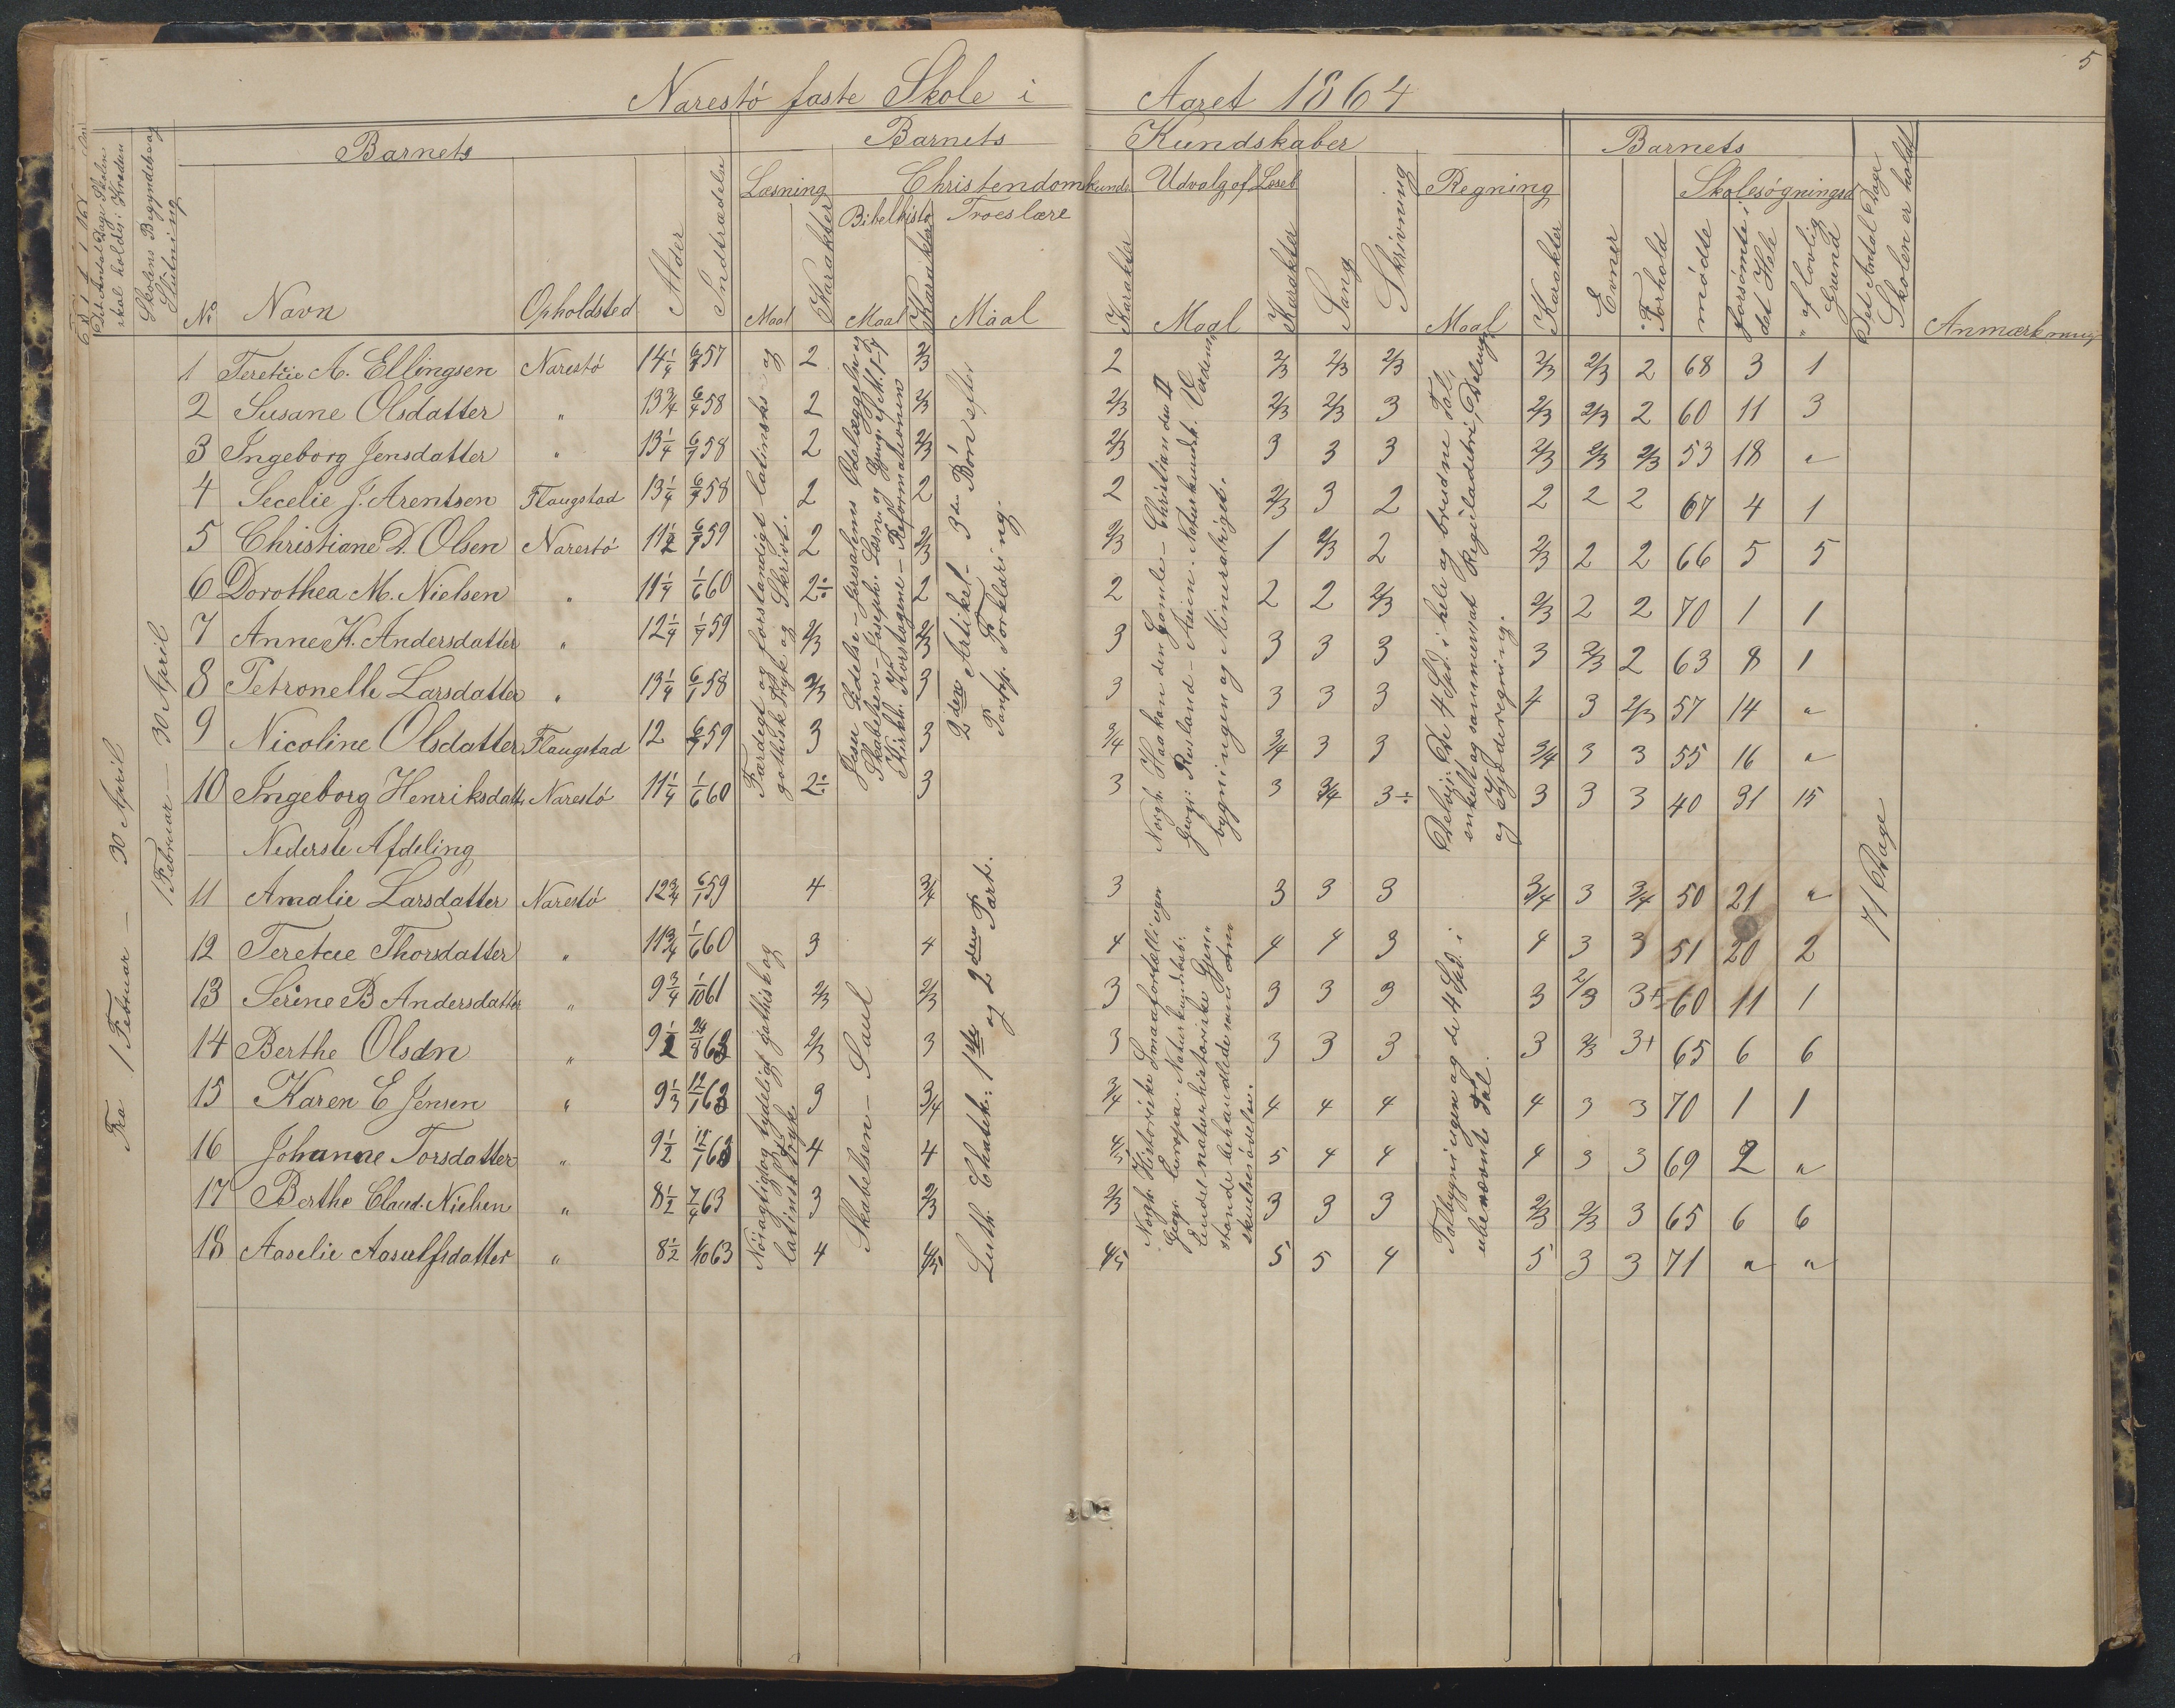 5
Narestö faste Skole i Aaret 1864
Det Antal Dage Skolen skal holdes i Kredsen
Skolens Begyndelse og Slutning
Barnets
Barnets Kundskaber
Barnets
Det Antal Dage Skolen er holdt
Læsning Christendomskunds Udvalg af Læseb Sang Skrivning Regning Evner Forhold Skolesøgningsd
Bibelhisto Troeslære mødte forsømte i det Hele " af lovlig Grund
No Navn Opholdsted Alder Indtrædelse Maal Karakter Maal Karakter Maal Karakter Maal Karakter Maal Karakter Anmærkning
Fra 1 Februar — 30 April
1 Februar — 30 April
1 Teretcie A. Ellingsen Narestö 14 1/4 57 2 2/3 2 2/3 2/3 2/3 2/3 2/3 2 68 3 1
2 Susane Olsdatter " 13 3/4 58 2 2/3 2/3 2/3 2/3 3 2/3 2/3 2 60 11 3
3 Ingeborg Jensdatter " 13 1/4 58 2 2/3 2/3 3 3 3 2/3 2/3 2/3 53 18 "
4 Secelie J. Arentsen Flaugstad 13 1/4 58 2 2 2 2/3 3 2 2 2 2 67 4 1
5 Christiane D. Olsen Narestö 11 1/2 59 2 2/3 2/3 1 2/3 2 2/3 2 2 66 5 5
6 Dorothea M. Nielsen " 11 1/4 1/6 60 2÷ 2 2 2 2 2/3 2/3 2 2 70 1 1
7 Anne K. Andersdatter " 12 1/4 59 2/3 2/3 3 3 3 3 3 2/3 2 63 8 1
8 Petronelle Larsdatter " 13 1/4 6/1 58 2/3 3 3 3 3 3 4 3 2/3 57 14 "
9 Nicoline Olsdatter Flaugstad 12 59 3 3 3/4 3/4 3 3 3/4 3 3 55 16 "
10 Ingeborg Henriksdatt Narestö 11 1/4 1/6 60 2÷ 3 3 3 3/4 3÷ 3 3 3 40 31 15
Færdigt og forstandigt latinsk og gothisk Tryk og Skrivt.
Jesu Lidelse — Jerusalems Ødelæggelse og
Skabelsen — Joseph. Læsn. og Gjeng. af M. 1-7
Kirkh. Korstogene — Reformationen
2den Artikel — 3die Bön efter
Pontopp. Forklaring.
Norgh. Haakon den Gamle — Christian den II
Geogr. Rusland — Asien. Naturkundsk. Verdens
bygningen og Mineralriget.
De 4 Spd. i hele og brudne Tal,
enkelt og sammensat Reguladetri, Delings
og Kjæderegning.
Nederste Afdeling
11 Amalie Larsdatter Narestö 12 3/4 6/1 59 4 3/4 3 3 3 3 3/4 3 3/4 50 21 "
12 Teretcie Thorsdatter " 11 3/4 1/6 60 3 4 4 4 4 3 4 3 3 51 20 2
13 Serine B Andersdatter " 9 3/4 1/10 61 2/3 2/3 3 3 3 3 3 2/3 3+ 60 11 1
14 Berthe Olsdn " 9 1/2 24/8 63 2/3 3 3 3 3 3 3 2/3 3+ 65 6 6
15 Karen E Jensen " 9 1/3 63 3 3/4 3/4 4 4 4 4 3 3 70 1 1
16 Johanne Torsdatter " 9 1/2 63 4 4 4/5 5 4 4 4 3 3 69 2 "
17 Berthe Claud. Nielsen " 8 1/2 7/4 63 3 2/3 2/3 3 3 3 2/3 2/3 3 65 6 6
18 Aaselie Aasulfsdatter " 8 1/2 63 4 4/5 4/5 5 5 4 5 3 3 71 " "
Nøiagtigt og tydeligt gothisk og latinsk Tryk
Skabelsen — Saul
Luth. Chatek: 1ste og 2den Part.
Norgh. Historiske Smaafortællinger
Geogr. Europa. Naturkundskab:
Endel naturhistoriske Gjen=
stande behandlede ved An=
skuelsesövelse.
Talbygningen og de 4 Spd. i
ubenævnte Tal.
71 Dage